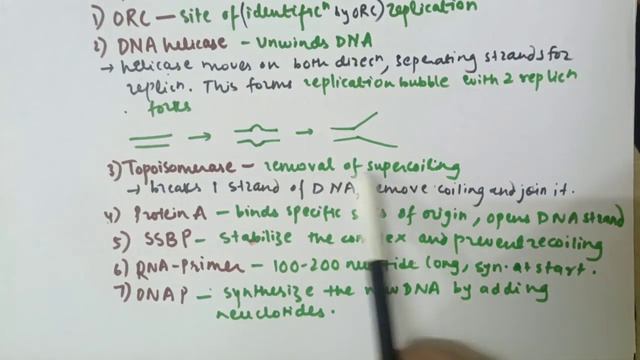 1) ORC – site of (identificⁿ by ORC) replication
2) DNA helicase – Unwinds DNA
→ helicase moves on both direcⁿ, seperating strands for
replicⁿ. This forms replication bubble with 2 replicⁿ
forks
3) Topoisomerase – removal of supercoiling
→ breaks 1 strand of DNA, remove coiling and join it.
4) Protein A – binds specific of origin, opens DNA strand
5) SSBP – stabilize the and prevent recoiling
6) RNA-Primer – 100-200 long, syn. at start.
7) DNA P – synthesize the DNA by adding
neuclotides.